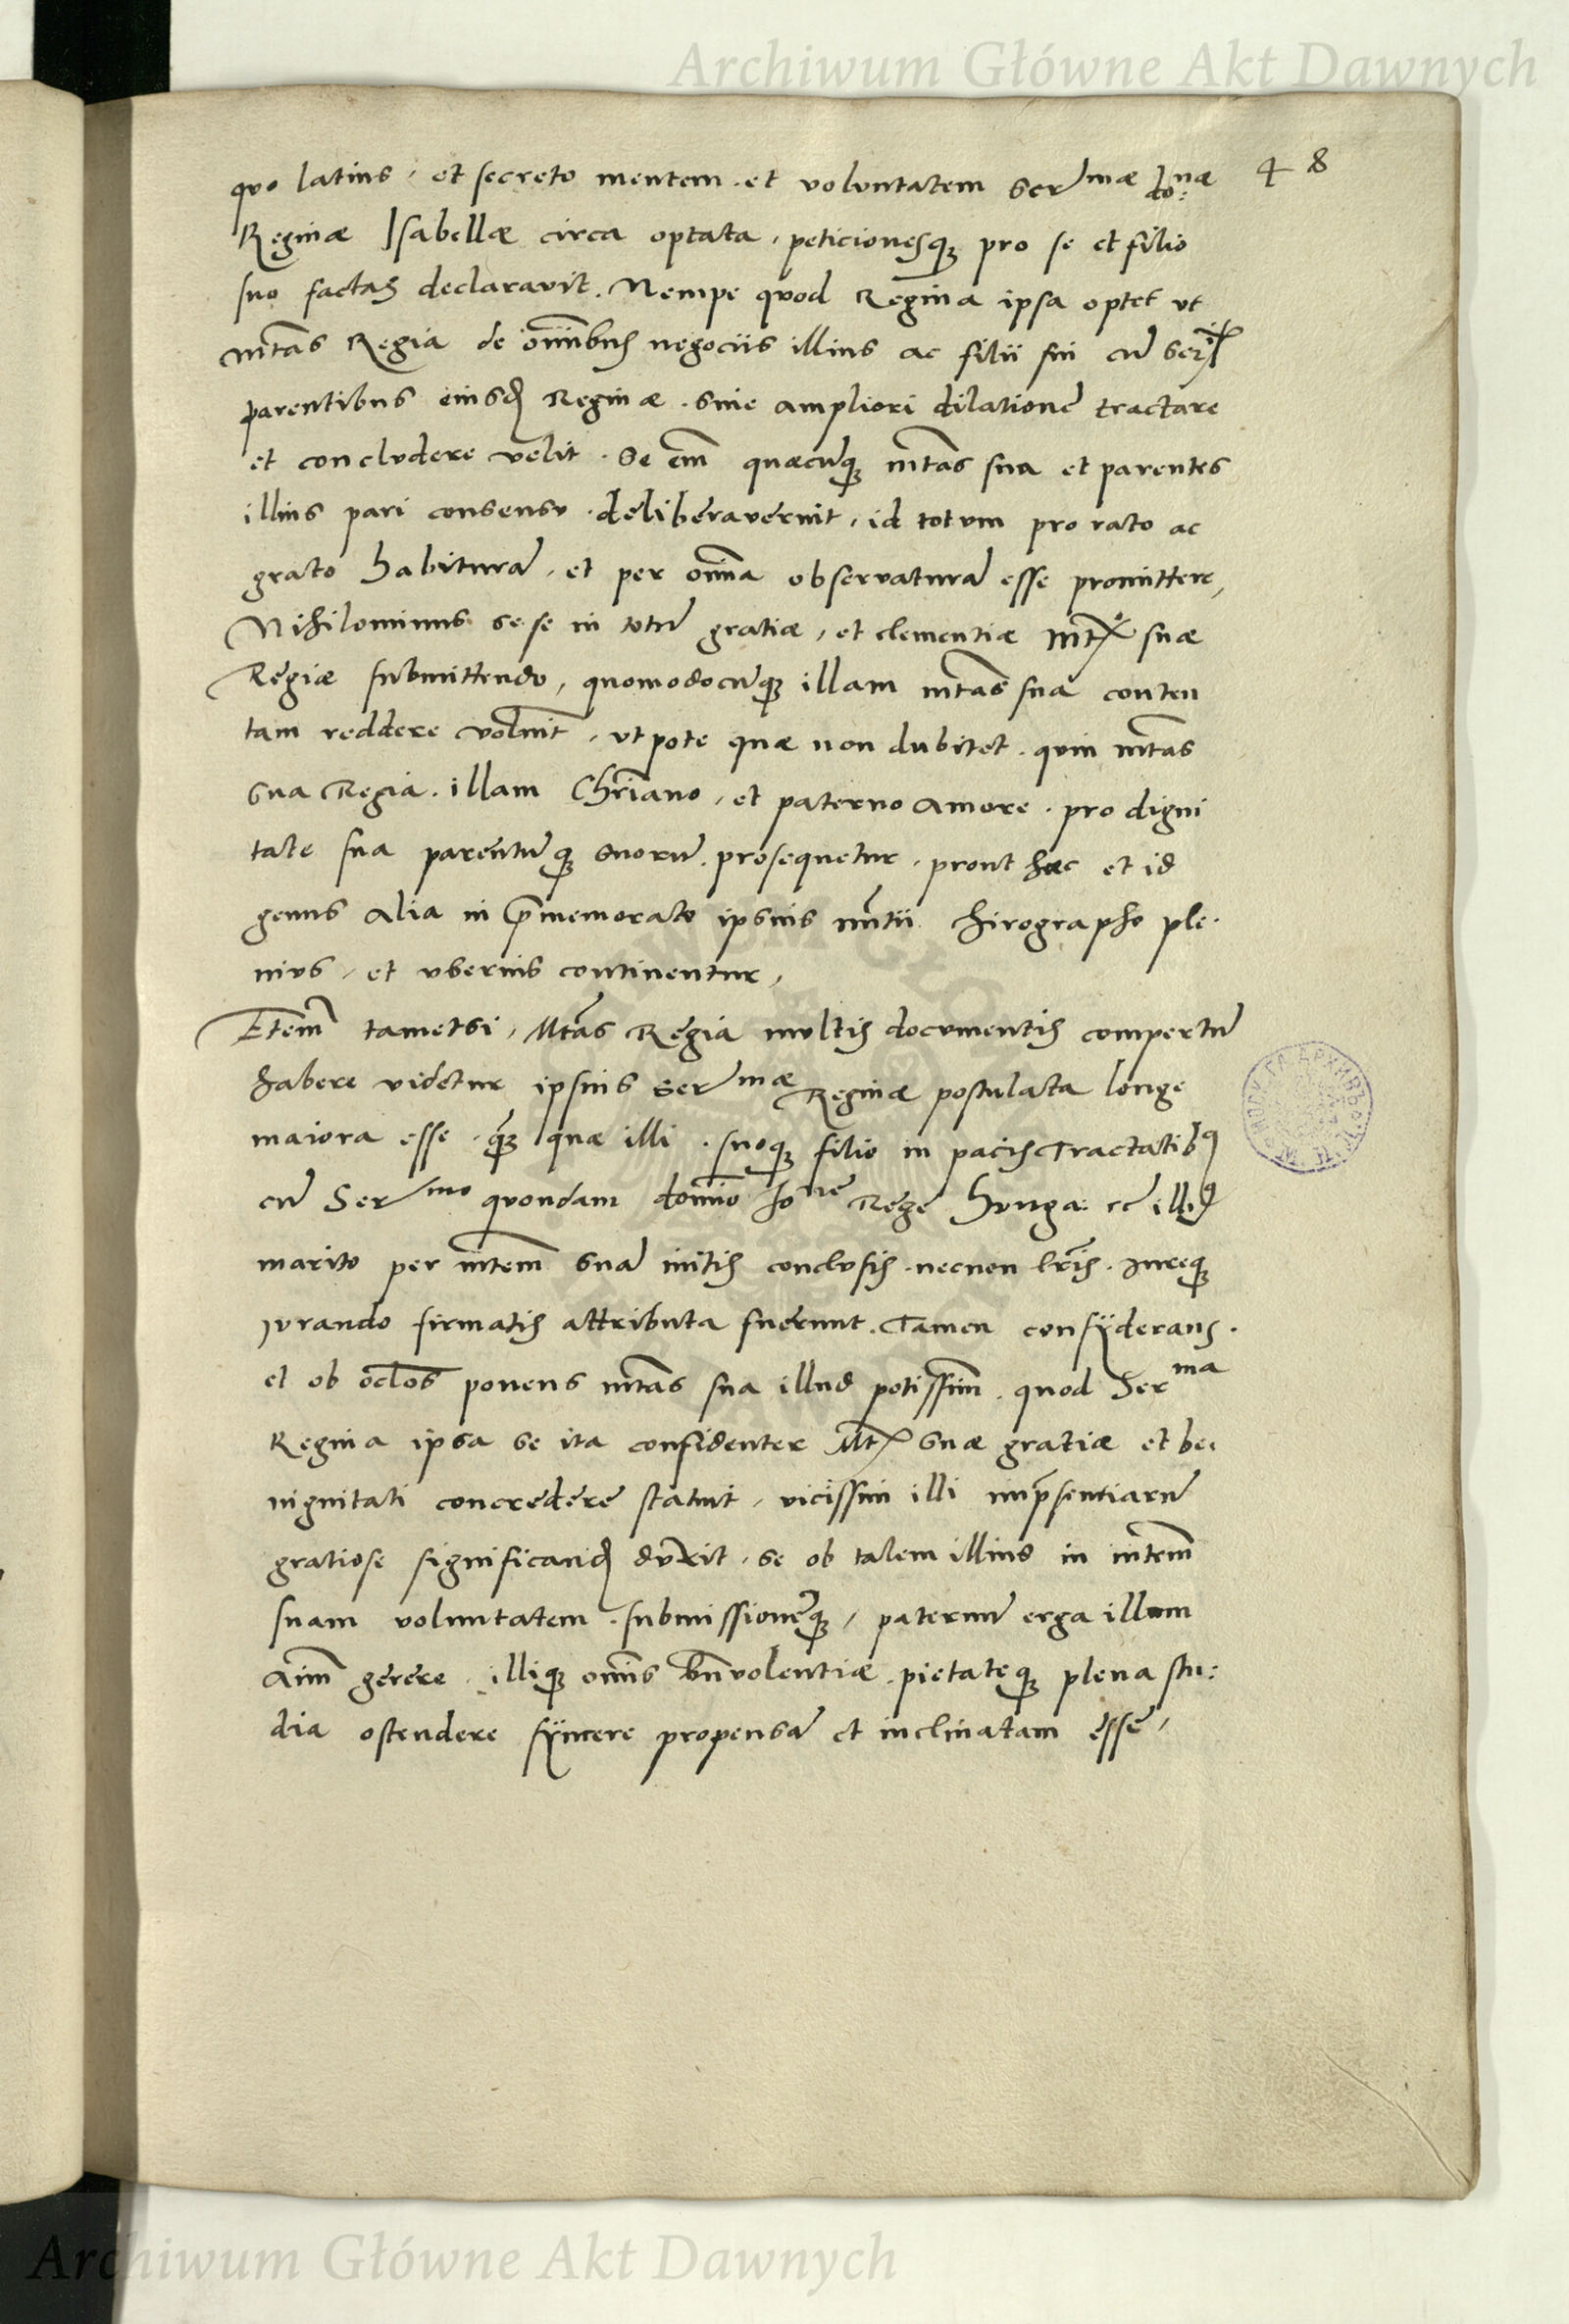 Archiwum Główne Akt Dawnych
48
quo latius, et secreto mentem et voluntatem Ser^mae do:^nae
Reginae Isabellae circa optata, peticionesq₃ pro se et filio
suo factas declaravit. Nempe quod Regina ipsa optet ut
Mtas Regia de omnibus negociis illius ac filii sui cū Ser^is
parentibus eiusd Reginae sine ampliori dilatione tractare
et concludere velit. Se em̄ quaecūq₃ Mtas sua et parentes
illius pari consensu deliberaverint, id totum pro rato ac
grato habiturā, et per omnia observaturā esse promittere,
Nihilominus sese in totū gratiae, et clementiae Mtis suae
Regiae submittendo, quomodocūq₃ illam Mtas sua conten
tam reddere voluerit, utpote quae non dubitet quin Mtas
sua Regia illam Chriano, et paterno amore pro digni
tate sua parentūq₃ suorū prosequetur, prout haec et id
genus alia in prememorato ipsius nuntii chirographo ple
nius, et uberius continentur,
Etenim tametsi, Mtas Regia multis documentis compertū
habere videtur ipsius Ser^mae Reginae postulata longe
maiora esse, quae illi suoq₃ filio in pacis Tractatibus
cū Ser^mo quondam domino Jo^ne Rege Hunga: &c illius
marito per Mtem suā initis conclusis necnon lris Jureq₃
jurando firmatis attributa fuerunt. Tamen consyderans
et ob oclos ponens Mtas sua illud potissim̄ quod Ser^ma
Regina ipsa se ita confidenter Mtis suae gratiae et be
nignitati concredere statuit, vicissim illi impresentiarū
gratiose significand duxit, se ob talem illius in Mtem
suam voluntatem submissionēq₃, paternū erga illam
aim̄ gerere illiq₃ omnis bn̄volentiae pietateq₃ plena stu:
dia ostendere syncere propensā et inclinatam esse,
Archiwum Główne Akt Dawnych